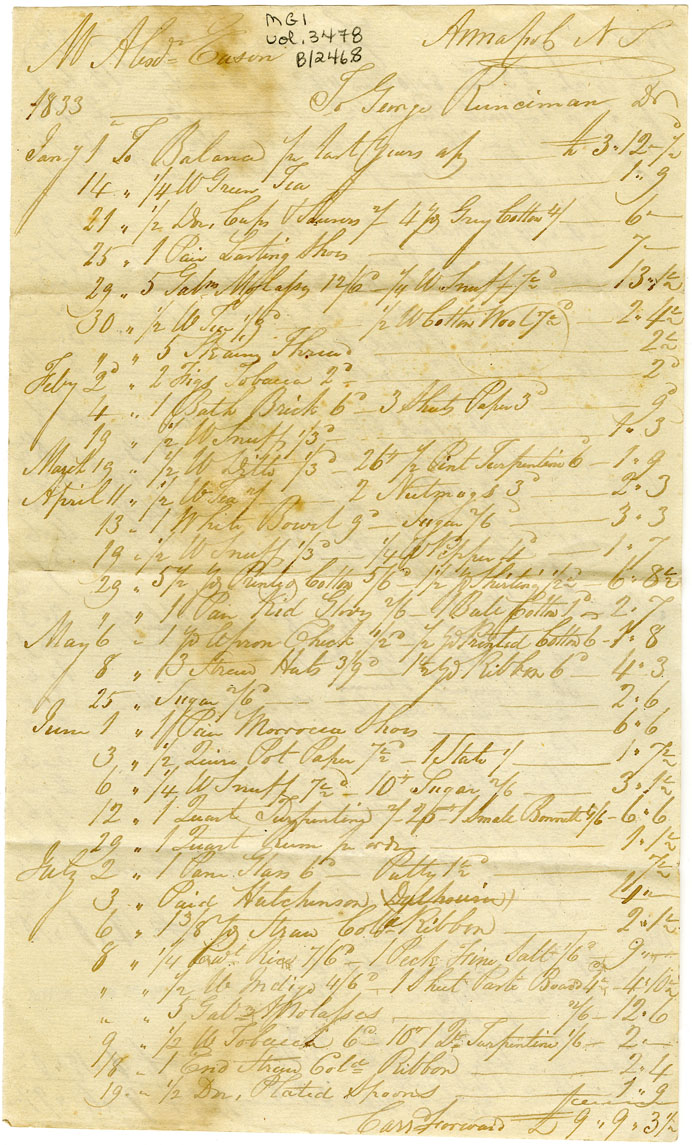 MG1
vol. 3478
B/2468
Mr Alexdr Eason Annapolis N S
1833 To George Runciman Dr
Jany 1st To Balance pr last years a/c £ 3 " 12 - 7½
14 " ¼ W Green Tea 1 " 9
21 " ½ Doz. Cups & Saucers 2/ 4 yds Grey Cotton 4/ 6 " -
25 " 1 Pair Lasting Shoes 7 -
29 " 5 Galns Molasses 12/6 - ¼ W Snuff 7½d 13 " 1½
30 " ½ W Tea 1/9d ½ W Cotton Wool 7½d 2 " 4½
" " 5 Skeins Thread 2½
Feby 2d " 2 Figs Tobacco 2d 2d
4 " 1 Bath Brick 6d - 3 Sheets Paper 3d 9d
19 " ½ W Snuff 1/3d 1 " 3
March 19 " ½ W Ditto 1/3d - 26th ½ Pint Turpentine 6d - 1 " 9
April 11 " ½ W Tea 2/ 2 Nutmegs 3d 2 " 3
13 " 1 White Bowel 9d - Sugar 2/6 3 " 3
19 " ½ W Snuff 1/3d - ¼ W Pepper 4d 1 " 7
29 " 5½ yds Printed Cotton 5/6d 1½ yd Shirting 1/2½ - 6 " 8½
" " 1 Pair Kid Gloves 2/6 - 1 Ball Cotton 1d - 2 " 7
May 6 " 1 yd Apron Check 1/2d - ½ yd Printed Cotton 6 - 1 " 8
8 " 3 Straw Hats 3/9d - 1½ yd Ribbon 6d - 4 " 3
25 " Sugar 2/6d 2 " 6
June 1 " 1 Pair Morrocca Shoes 6 " 6
3 " ½ Quire Pot Paper 7½d - 1 Slate 1/ 1 " 7½
6 " ¼ W Snuff 7½d - 10th Sugar 2/6 3 " 1½
12 " 1 Quart Turpentine 2/ - 25th 1 Small Bonnett 4/6 - 6 " 6
29 " 1 Quart Rum pr order 1 " 1½
July 2 " 1 Pane Glass 6d - Putty 1½d 7½
3 " Paid Hutchinson (Dalhousie)
6 " 1 3/8 yd Straw Cold Ribbon 2 " 1½
8 " ¼ Cwt Rice 7/6d - Peck Fine Salt 1/6d 9 " -
" " ½ W Indigo 4/6d - 1 Sheet Paste Board 4½ - 4 " 10½
" " 5 Gals Molasses 2/6 - 12 " 6
9 " ½ W Tobacco 6d - 10th 1 Pt Turpentine 1/6 - 2 " -
18 " 1 End Straw Cold Ribbon 2 " 4
19 " ½ Doz. Plated Spoons 1 " 9
Carrd Forward £ 9 " 9 " 3½